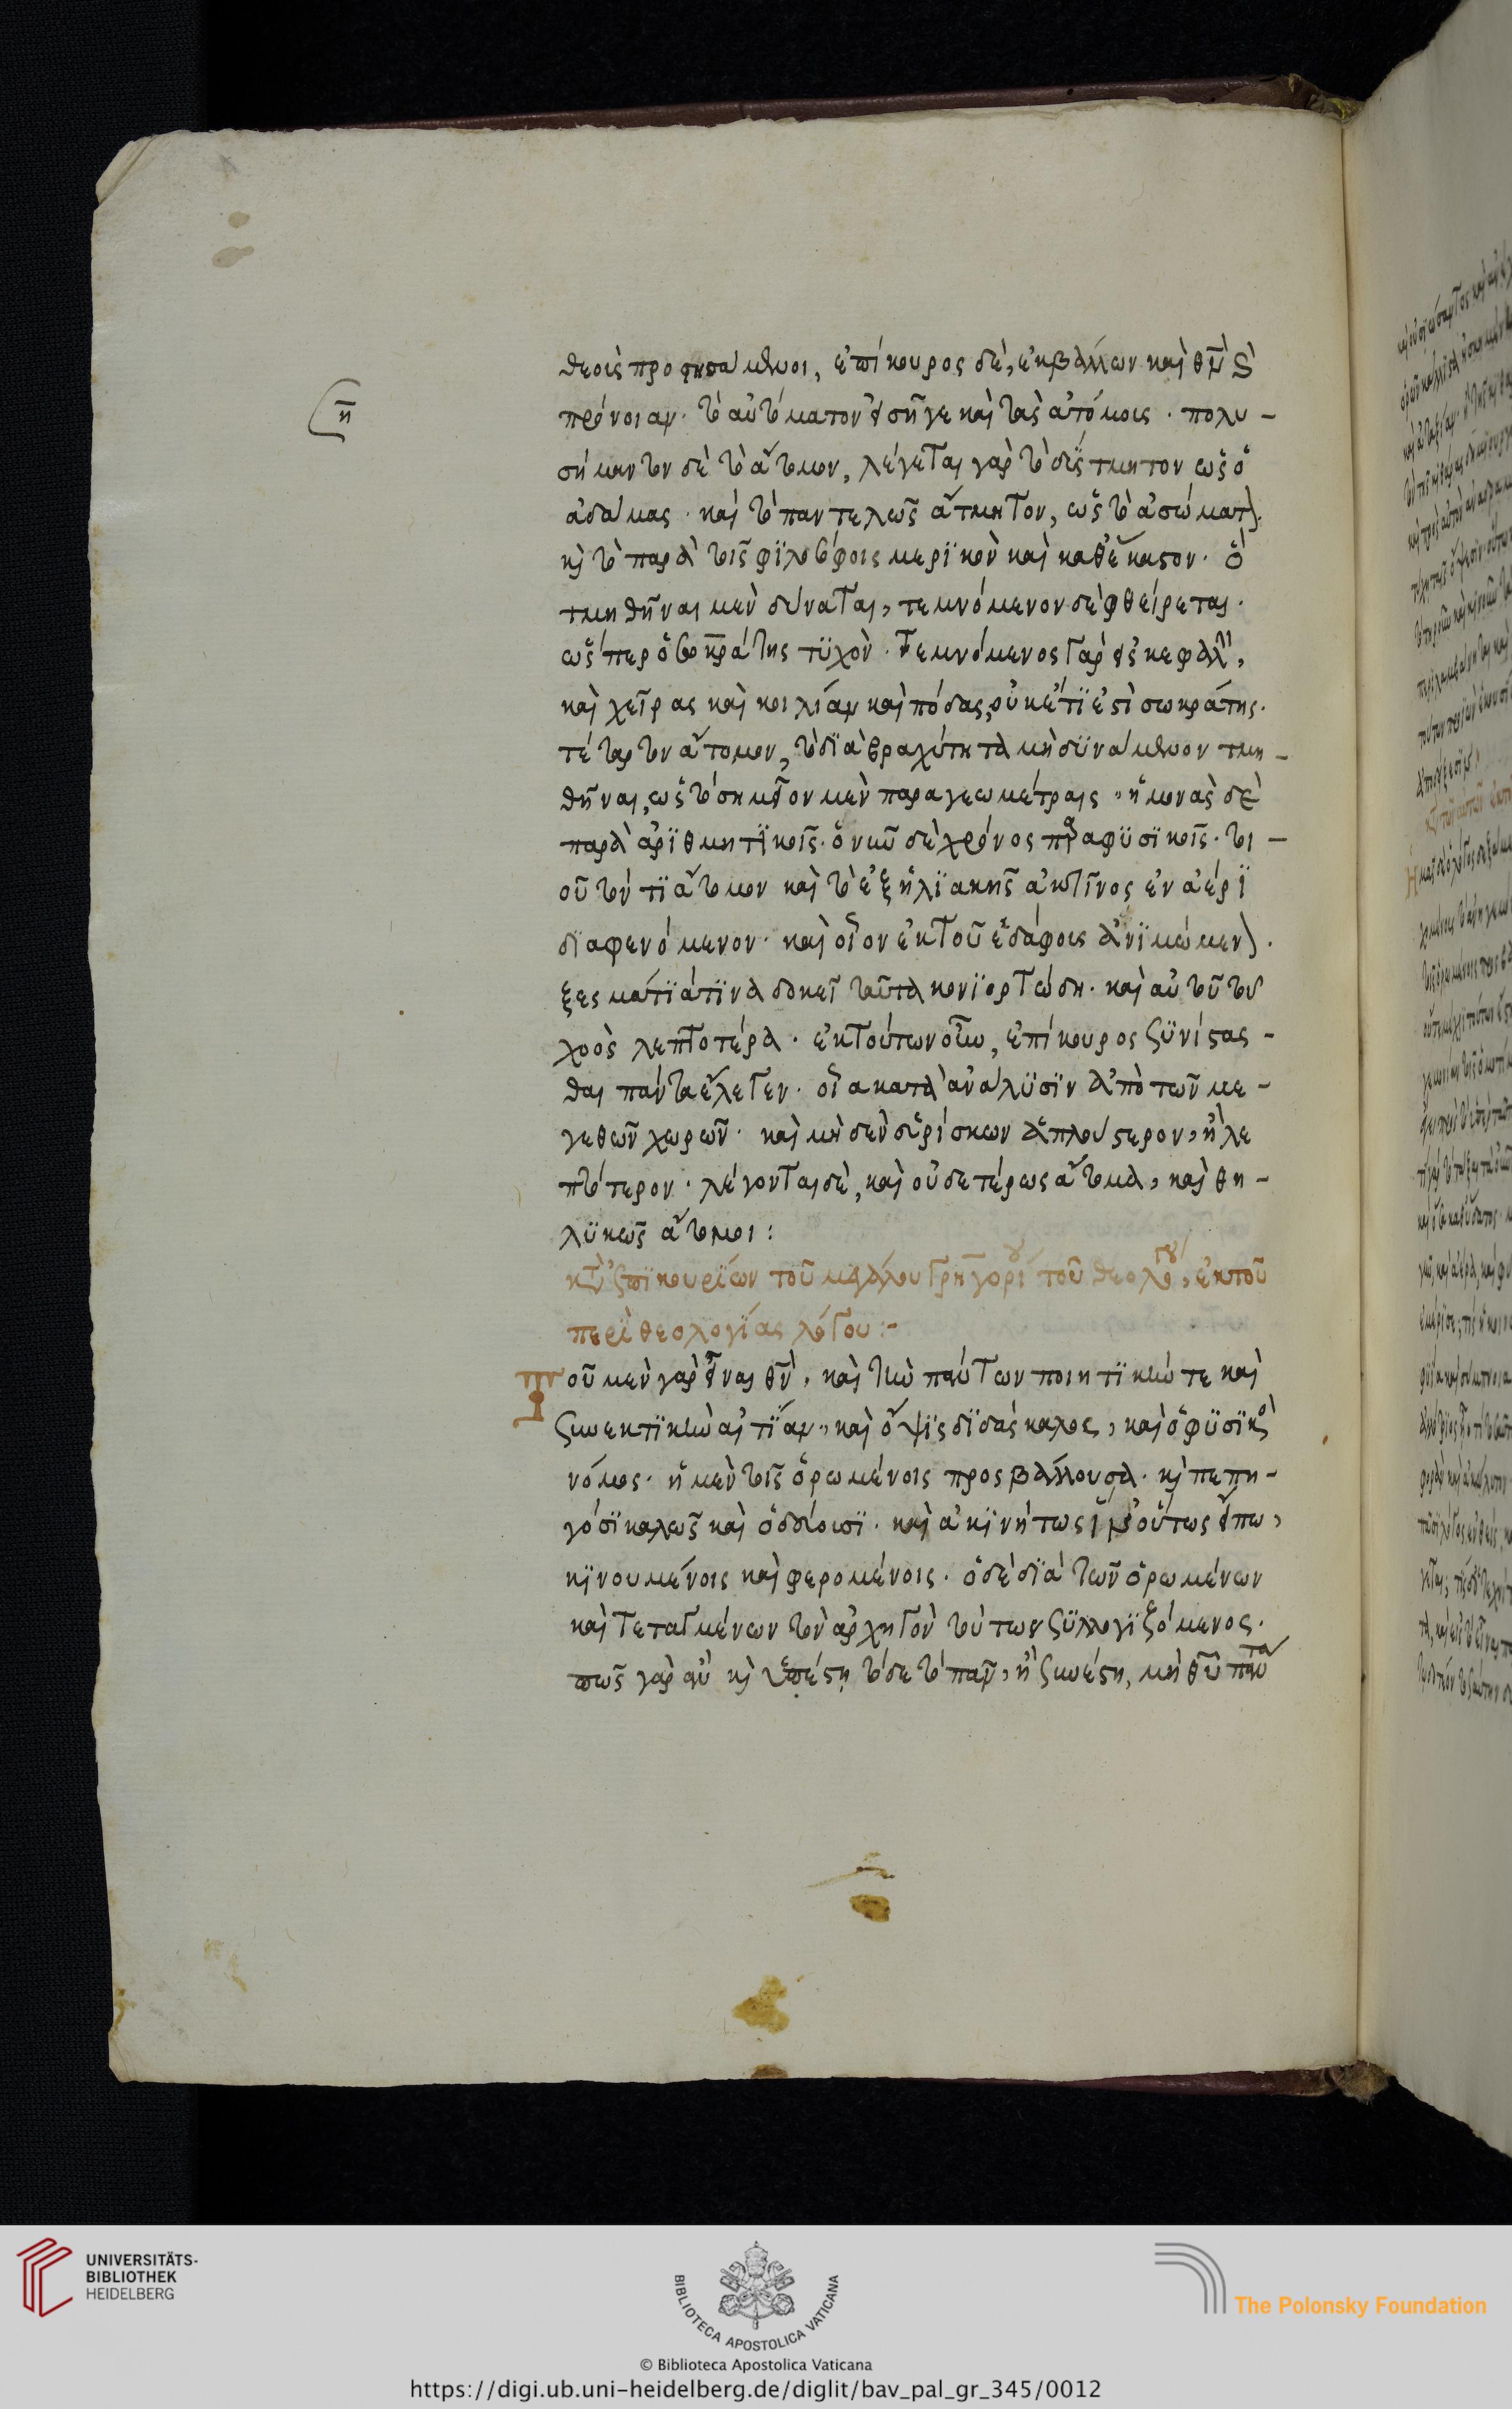 η
θεοῖς προσησάμενοι, ἐπίκουρος δὲ, ἐκβάλλων καὶ θν καὶ
πρόνοιαν· τὸ αὐτόματον εἰσῆγε καὶ τὰς ἀτόμοις· πολυ-
σήμαντον δὲ τὸ ἄτομον, λέγεται γὰρ τὸ δύστμητον ὡς ὁ
ἀδάμας· καὶ τὸ παντελῶς ἄτμητον, ὡς τὸ ἀσώματον·
κὶ τὸ παρὰ τοῖς φϊλοσόφοις μερϊκὸν καὶ καθέκαστον· ὃ
τμηθῆναι μὲν δύναται, τεμνόμενον δὲ φθείρεται·
ὥσπερ ὁ σωκράτης τϋχὸν· τεμνόμενος γὰρ εἰς κεφαλὴν,
καὶ χεῖρας καὶ κοιλίαν καὶ πόδας, οὐκέτϊ ἐστὶ σωκράτης·
τέταρτον ἄτομον, τὸ δϊὰ βραχύτητα μὴ δϋνάμενον τμη-
θῆναι, ὡς τὸ σημεῖον μὲν παρα γεωμέτραις, ἡ μονὰς δὲ
παρὰ ἀρϊθμητϊκοῖς· ὁ νῦν δὲ χρόνος παρα φϋσϊκοῖς· τοι-
οῦτόν τϊ ἄτομον καὶ τὸ ἐξ ἡλϊακῆς ἀκτῖνος ἐν ἀέρϊ
δϊαφενόμενον· καὶ οἷον ἐκ τοῦ ἐδάφοις ἀνϊμώμενον·
ξεσμάτϊα τϊνὰ δοκεῖ ταῦτα κονϊορτώδη· καὶ αὐτοῦ τοῦ
χοὸς λεπτοτέρα· ἐκ τούτων οὖν, ἐπίκουρος ξϋνίστας-
θαι πάντα ἔλεγεν· οἷα κατὰ ἀνάλϋσϊν ἀπὸ τῶν με-
γεθῶν χωρῶν· καὶ μὴδὲν εὑρίσκων ἁπλούστερον, ἢ λε
πτότερον· λέγονται δὲ, καὶ οὐδετέρως ἄτομα, καὶ θη-
λϋκῶς ἄτομοι:
κατὰ ἐπϊκουρείων τοῦ μεγάλου γρηγορίου τοῦ θεολόγου, ἐκ τοῦ
περὶ θεολογίας λόγου:-
Τοῦ μὲν γὰρ εἶναι θν, καὶ τὴν πάντων ποιητϊκήν τε καὶ
ξυνεκτϊκὴν αἰτϊαν, καὶ ὄψϊς δϊδάσκαλος, καὶ ὁ φϋσϊκὸς
νόμος· ἡ μὲν τοῖς ὁρωμένοις προσβάλλουσα· κὶ πεπη-
γόσϊ καλῶς καὶ ὁδεύουσϊ· καὶ ἀκϊνήτως ἵν οὕτως εἴπω,
κϊνουμένοις καὶ φερομένοις· ὁ δὲ δϊὰ τῶν ὁρωμένων
καὶ τεταγμένων τὸν ἀρχηγὸν τούτων ξϋλλογϊζόμενος·
πῶς γὰρ ἂν κὶ ὑπέστη τόδε τὸ πᾶν, ἢ ξυνέστη, μὴ θῦ πάντα
UNIVERSITÄTS-
BIBLIOTHEK
HEIDELBERG
BIBLIOTECA APOSTOLICA VATICANA
The Polonsky Foundation
© Biblioteca Apostolica Vaticana
https://digi.ub.uni-heidelberg.de/diglit/bav_pal_gr_345/0012